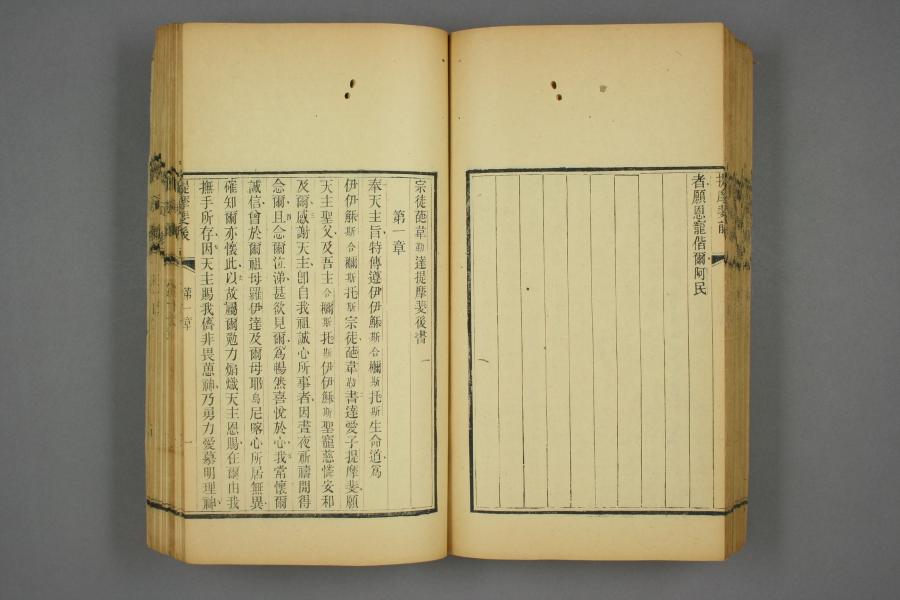 者願恩寵偕爾阿民
宗徒葩韋勒達提摩斐後書
第一章
奉天主旨特傳遵伊伊穌斯合爾斯托斯生命道爲
伊伊穌斯合爾斯托斯宗徒葩韋勒書達愛子提摩斐願
天主聖父及吾主合爾斯托斯伊伊穌斯聖寵慈憐安和
及爾感謝天主卽自我祖誠心所事者因晝夜祈禱間得
念爾且念爾泣涕甚欲見爾爲暢然喜悅於心我常懷爾
誠信曾於爾祖母羅伊達及爾母耶烏尼喀心所居無異
確知爾亦懷此以故囑爾勉力煽熾天主恩賜在爾由我
撫手所存因天主賜我儕非畏葸神乃勇力愛慕明理神
提摩斐後
第一章
一